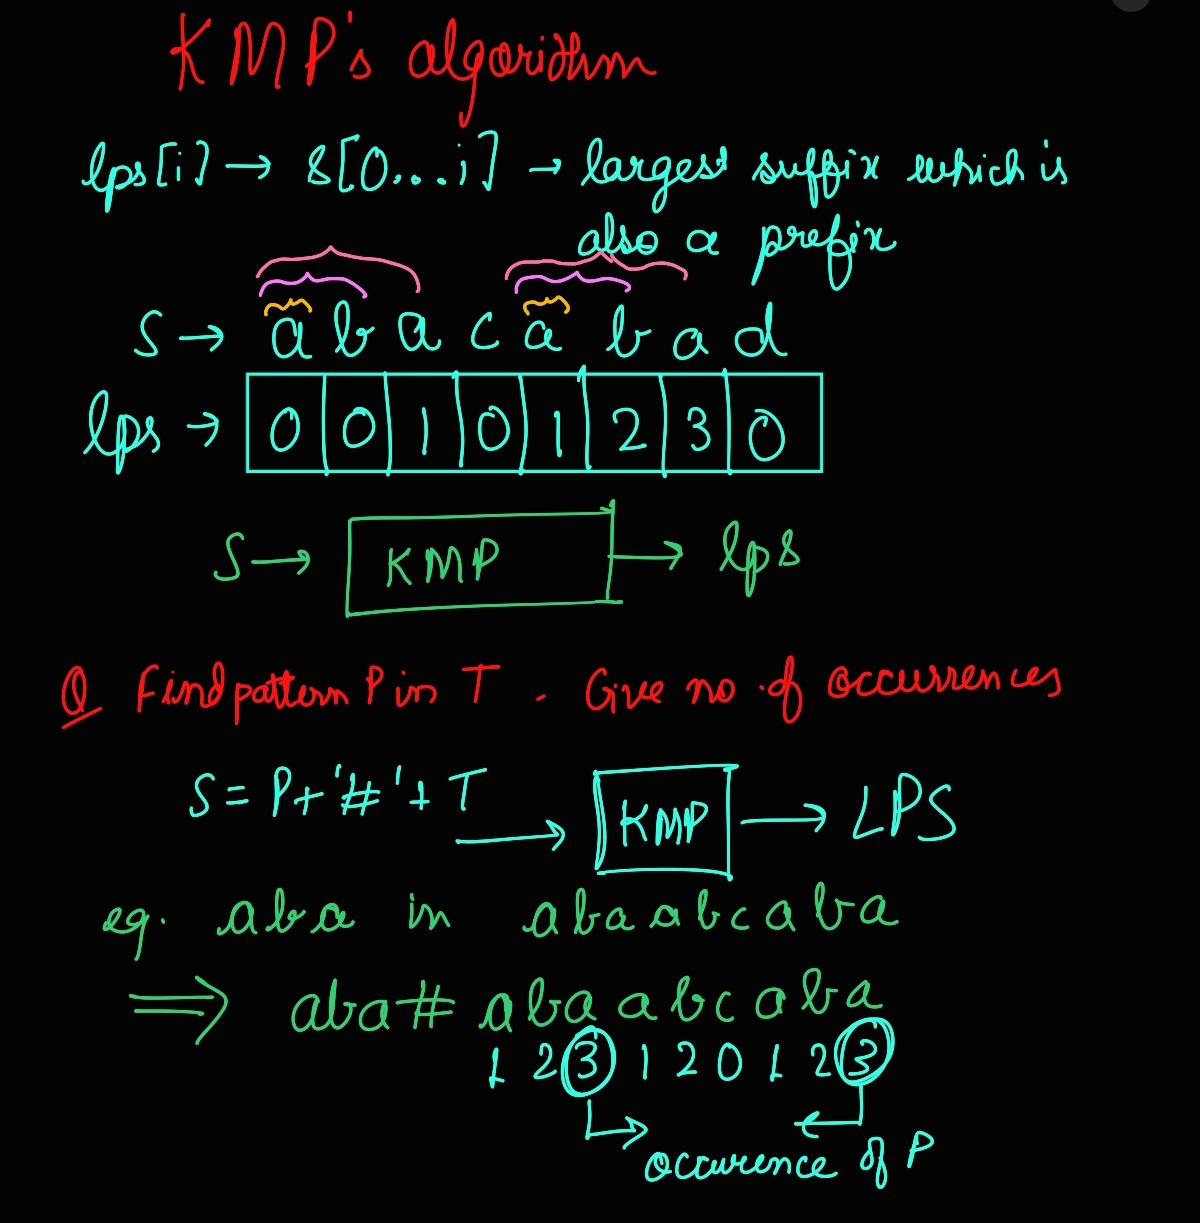 KMP's algorithm
lps[i] → s[0...i] → largest suffix which is
also a prefix
S → a b a c a b a d
lps → 0 0 1 0 1 2 3 0
S → KMP → lps
Q Find pattern P in T . Give no of occurrences
S = P+'#'+ T → KMP → LPS
eg. aba in abaabcaba
⇒ aba# abaabcaba
1 2 3 1 2 0 1 2 3
occurence of P